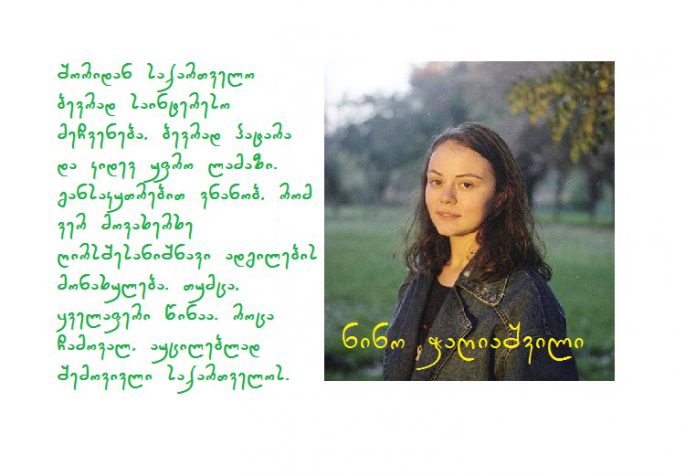 შორიდან საქართველო
ბევრად საინტერესო
მეჩვენება, ბევრად პატარა
და კიდევ უფრო ლამაზი.
განსაკუთრებით ვნანობ, რომ
ვერ მოვახერხე
ღირსშესანიშნავი ადგილების
მონახულება. თუმცა,
ყველაფერი წინაა. როცა
ჩამოვალ, აუცილებლად
შემოვივლი საქართველოს.
ნინო ჭალიაშვილი